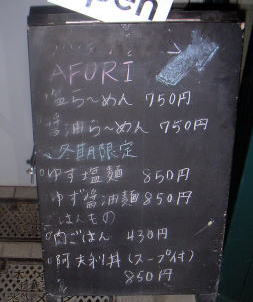 open
AFURI
塩ら～めん 750円
醤油ら～めん 750円
冬期限定
ゆず塩麺 850円
ゆず醤油麺 850円
ごはんもの
肉ごはん 430円
阿夫利丼(スープ付)
850円